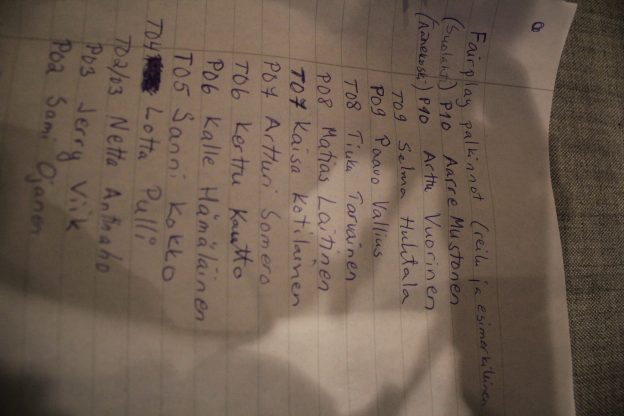 Fairplay palkinnot (reilu ja esimerkillinen
(Suolaht.) P10 Aarre Mustonen
(Äänekoski) P10 Arttu Vuorinen
T09 Selma Huhtala
P09 Paavo Vallius
T08 Tiuka Tarvainen
P08 Matias Laitinen
T07 Kaisa Kotilainen
P07 Artturi Somero
T06 Kerttu Kautto
P06 Kalle Hämäläinen
T05 Sanni Kokko
T04 Lotta Pulli
T02/03 Netta Anttaho
P03 Jerry Viik
P02 Sami Ojanen